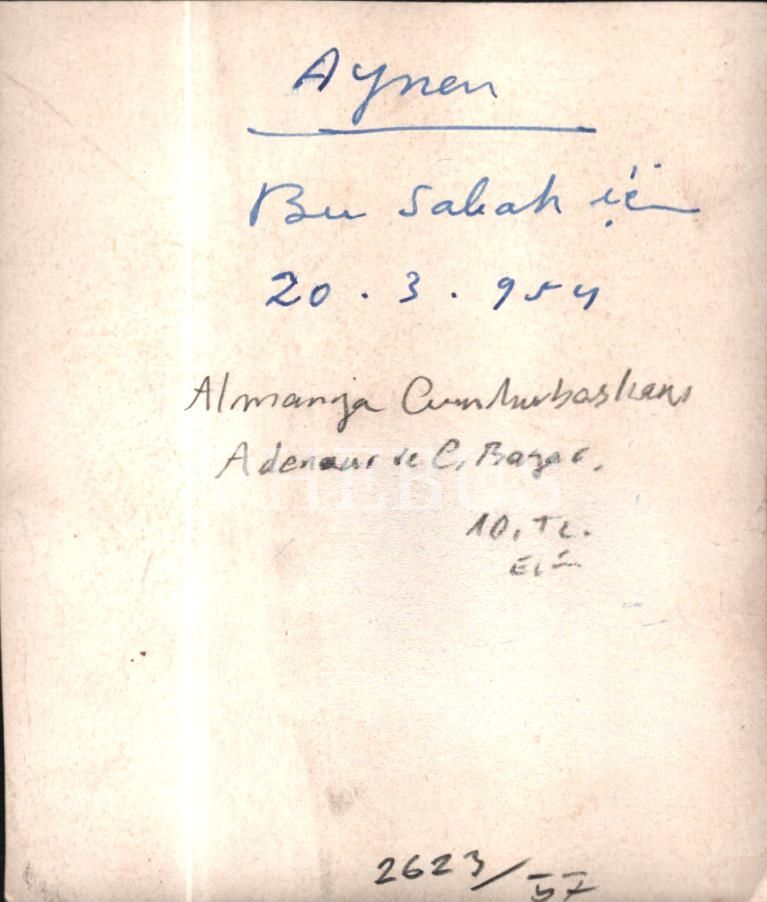 Aynen
Bu Sabah için
20.3.954
Almanya Cumhurbaşkanı
Adenaur ve C. Bayar.
10. TL.
2623/57